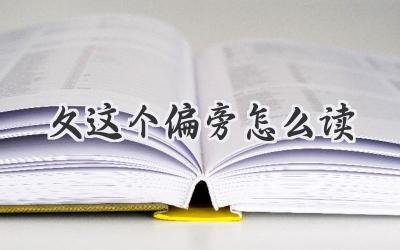 攵这个偏旁怎么读